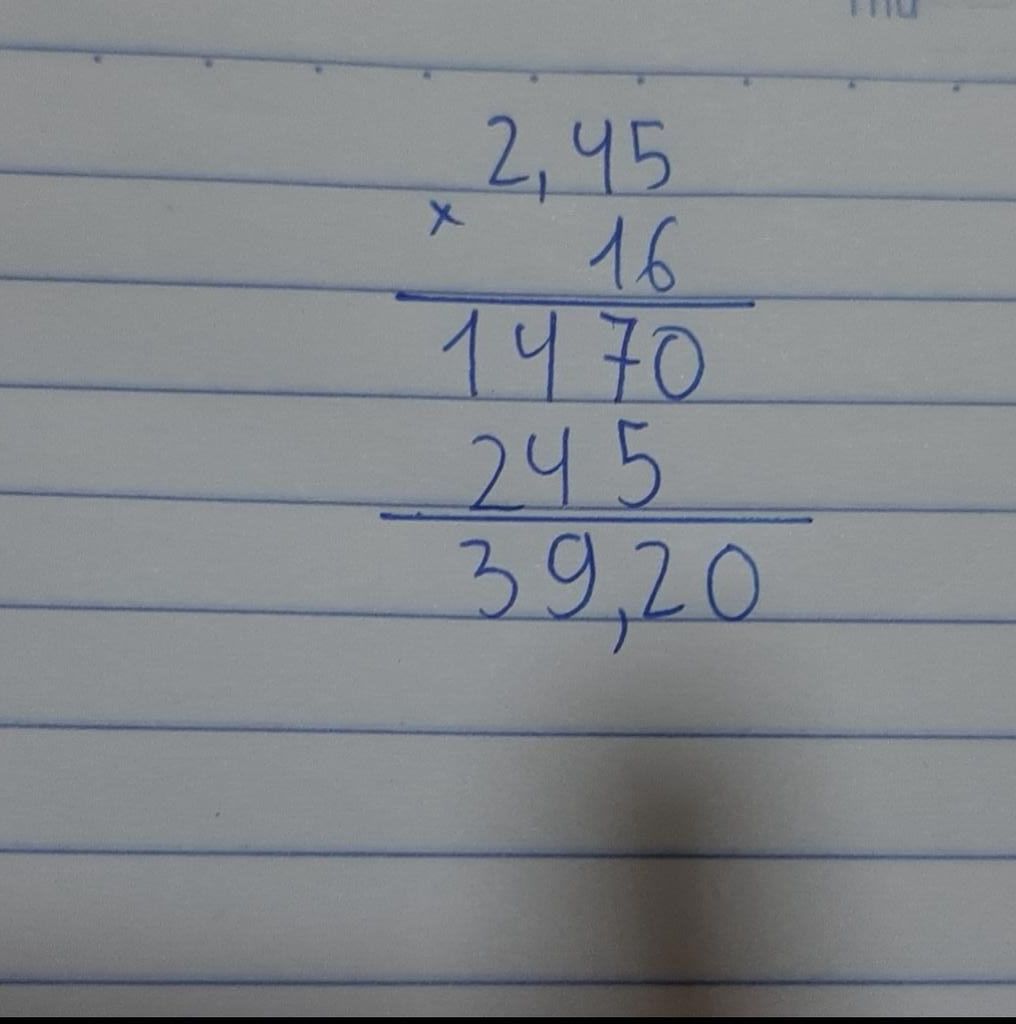 2,45
x 16
1470
245
39,20